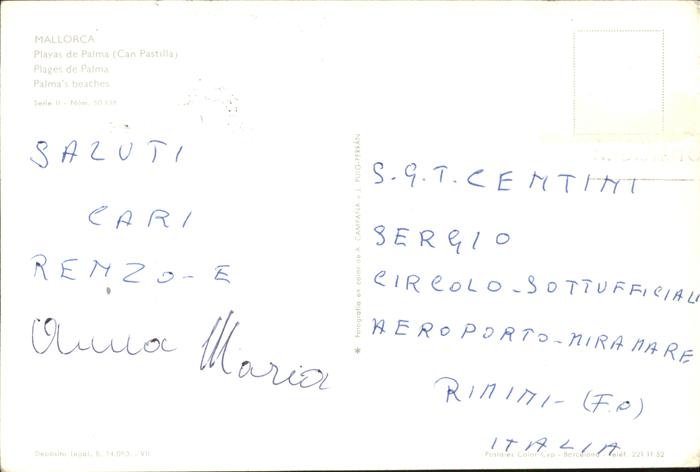 MALLORCA
Playas de Palma (Can Pastilla)
Plages de Palma
Palma's beaches
Serie II - Núm.
SALUTI
CARI
RENZO - E
Anna Maria
Fotografía en color de A. CAMPAÑA y J. PUIG-FERRÁN
S.G.T. CENTINI
SERGIO
CIRCOLO - SOTTUFFICIALI
AEROPORTO - MIRAMARE
RIMINI - (FO)
ITALIA
Depósito Legal, B. 14.093. - VII
Postales Color Cyp - Barcelona - Teléf. 221 11 52